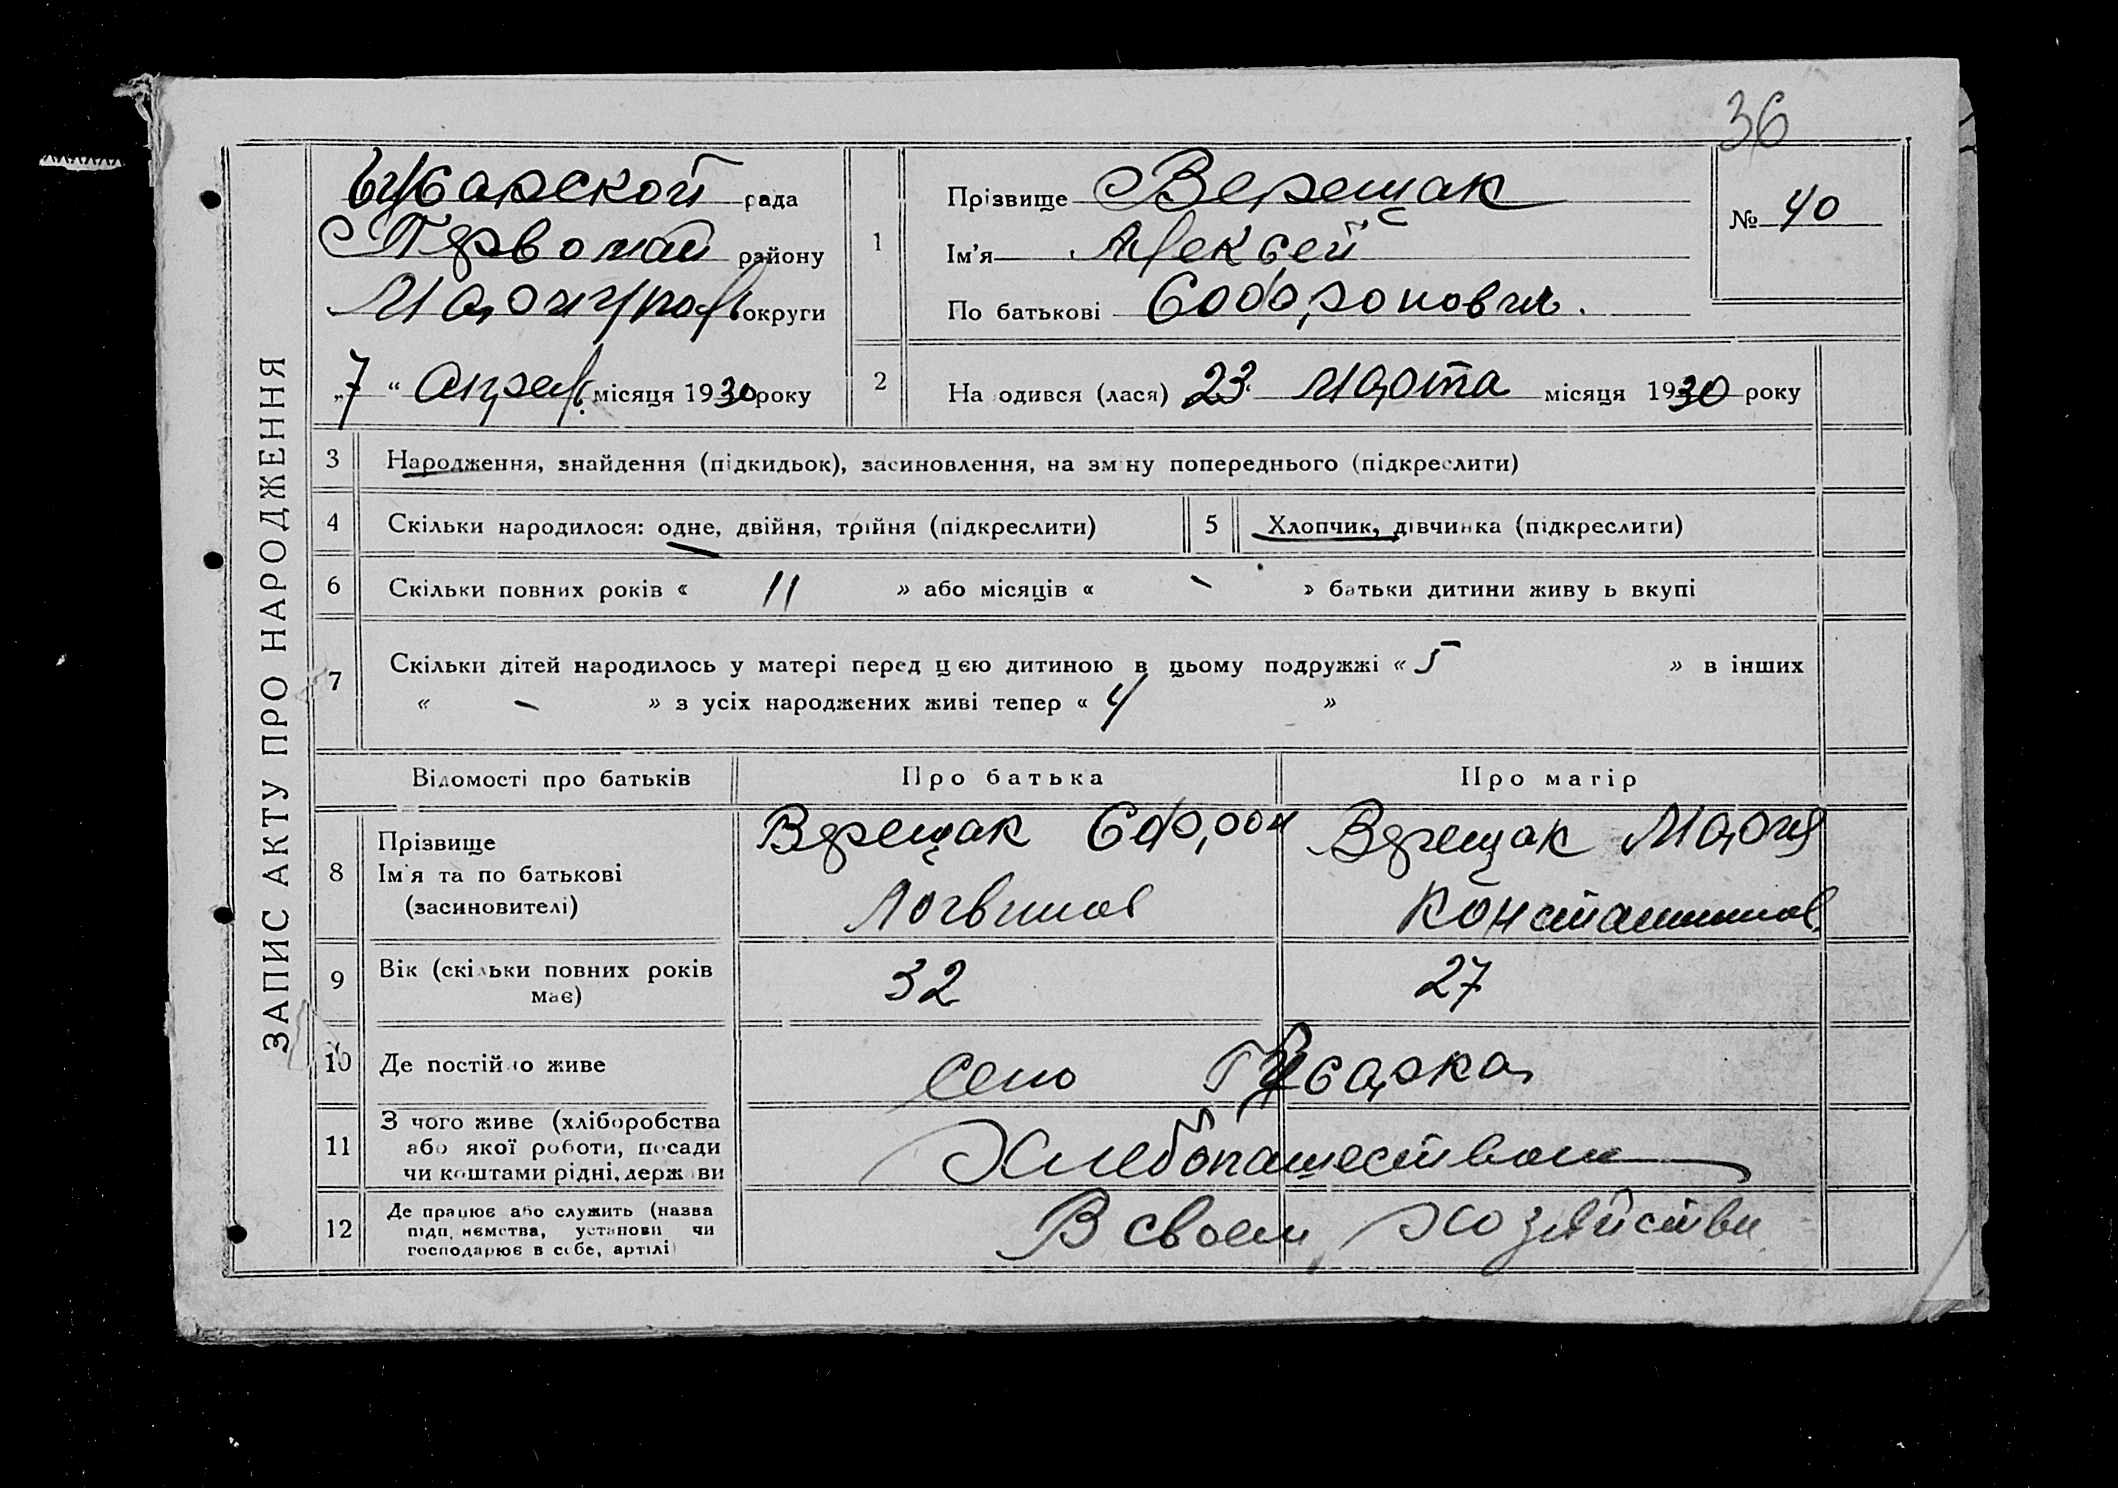 36
ЗАПИС АКТУ ПРО НАРОДЖЕННЯ
рада
району
округи
7 " Апрель місяця 1930 року
1
Прізвище Верещак
Ім'я Алексей
По батькові
№ 40
2
На одився (лася) 23 Марта місяця 1930 року
3 Народження, знайдення (підкидьок), засиновлення, на зм ну попереднього (підкреслити)
4 Скільки народилося: одне, двійня, трійня (підкреслити)
5 Хлопчик, дівчинка (підкреслити)
6 Скільки повних років « 11 » або місяців « - » батьки дитини живу ь вкупі
7 Скільки дітей народилось у матері перед цєю дитиною в цьому подружжі « 5 » в інших
« - » з усіх народжених живі тепер « 4 »
Відомості про батьків
Про батька
Про матір
8
Прізвище
Ім'я та по батькові
(засиновителі)
Верещак
Логвинов
Верещак Мария
Константинов.
9
Вік (скільки повних років
має)
32
27
10 Де постійно живе
село Гусарка
11
З чого живе (хліборобства
або якої роботи, посади
чи коштами рідні, держави
Хлебопашеством
12
Де працює або служить (назва
підп. ємства, установи чи
господарює в себе, артілі)
В своем хозяйстве